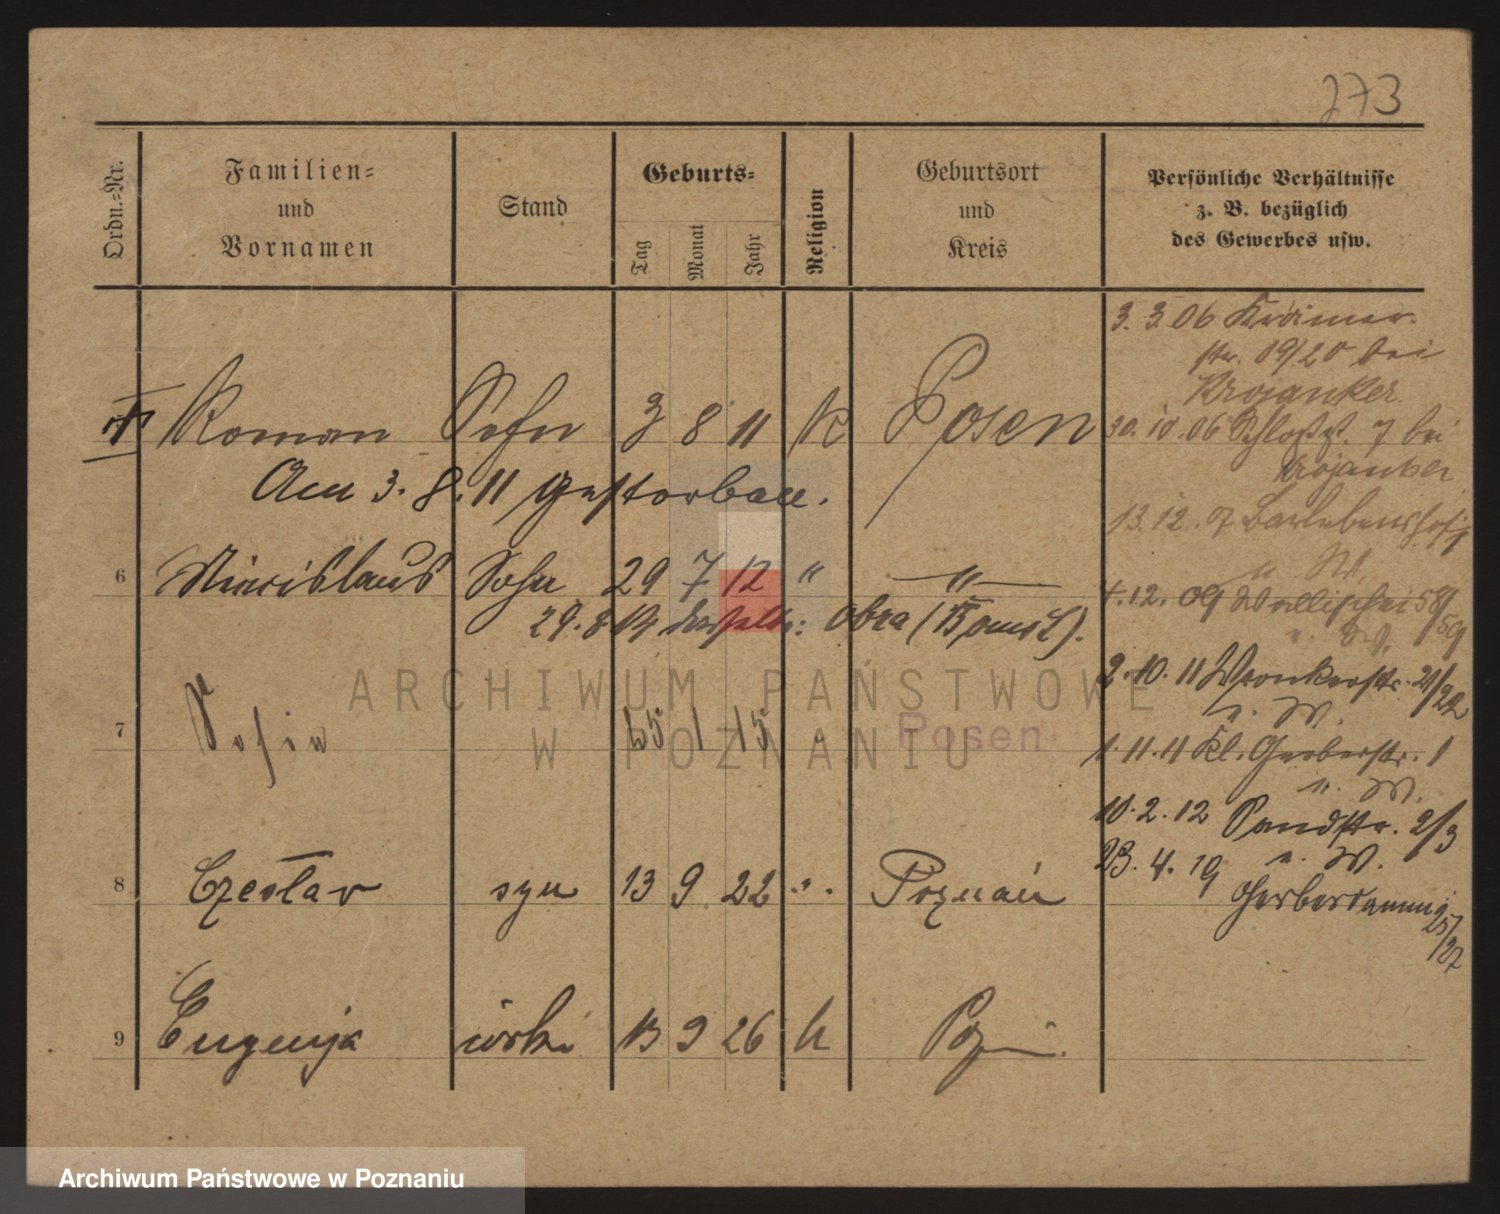 273
Ordn.-Nr.
Familien-
und
Vornamen
Stand
Geburts-
Tag
Monat
Jahr
Religion
Geburtsort
und
Kreis
Persönliche Verhältnisse
z. B. bezüglich
des Gewerbes usw.
Roman Sohn 3 8 11 K Posen
Am 3. 8. 11 gestorben.
6 Sohn 29 7 12 " "
29. 8. Obra
7 Sofia 1 15 Posen
8 Czesław syn 13 9 22 " Poznań
9 Eugenja córka 13 9 26 k
3. 3. 06 Krämer-
str. 19/20 bei
Krojanker
30. 10. 06 Schloßstr. 7 bei
Krojanker
13. 12. 07
u. W.
4. 12. 09 Wallischei 58/59
u. W.
2. 10. 11 Wronkerstr. 21/22
u. W.
1. 11. 11 Kl. Gerberstr. 1
u. W.
10. 2. 12 Sandstr. 2/3
u. W.
23. 4. 19 Gerberdamm
25/27
ARCHIWUM PAŃSTWOWE
W POZNANIU
Archiwum Państwowe w Poznaniu